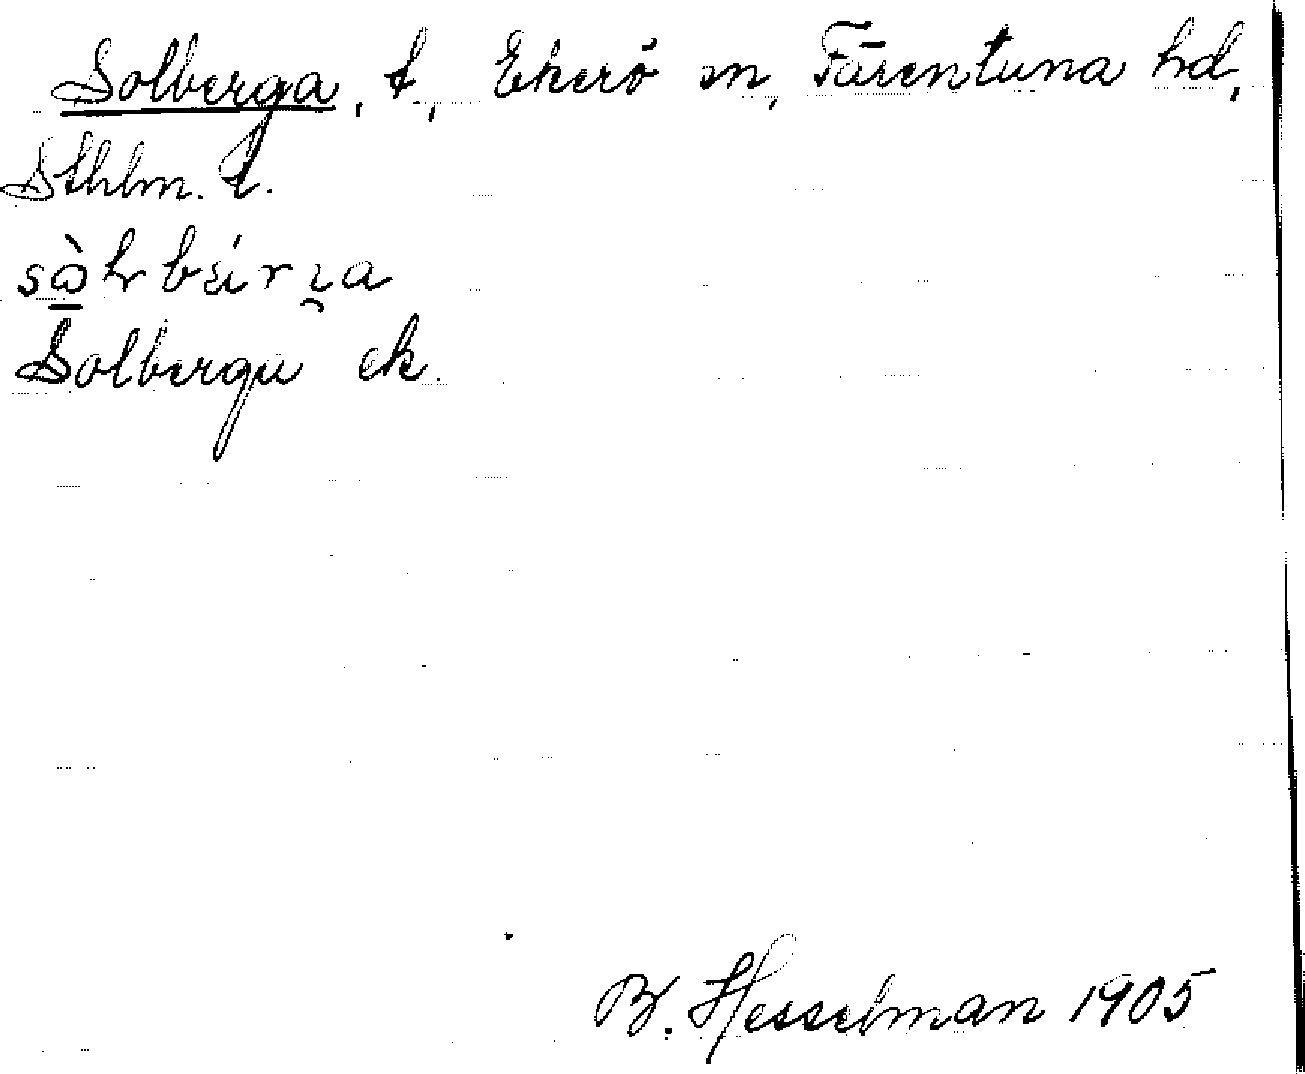 Solberga, t, Ekerö sn, Färentuna hd,
Sthlm. l.
Solberga ek.
B. Hesselman 1905